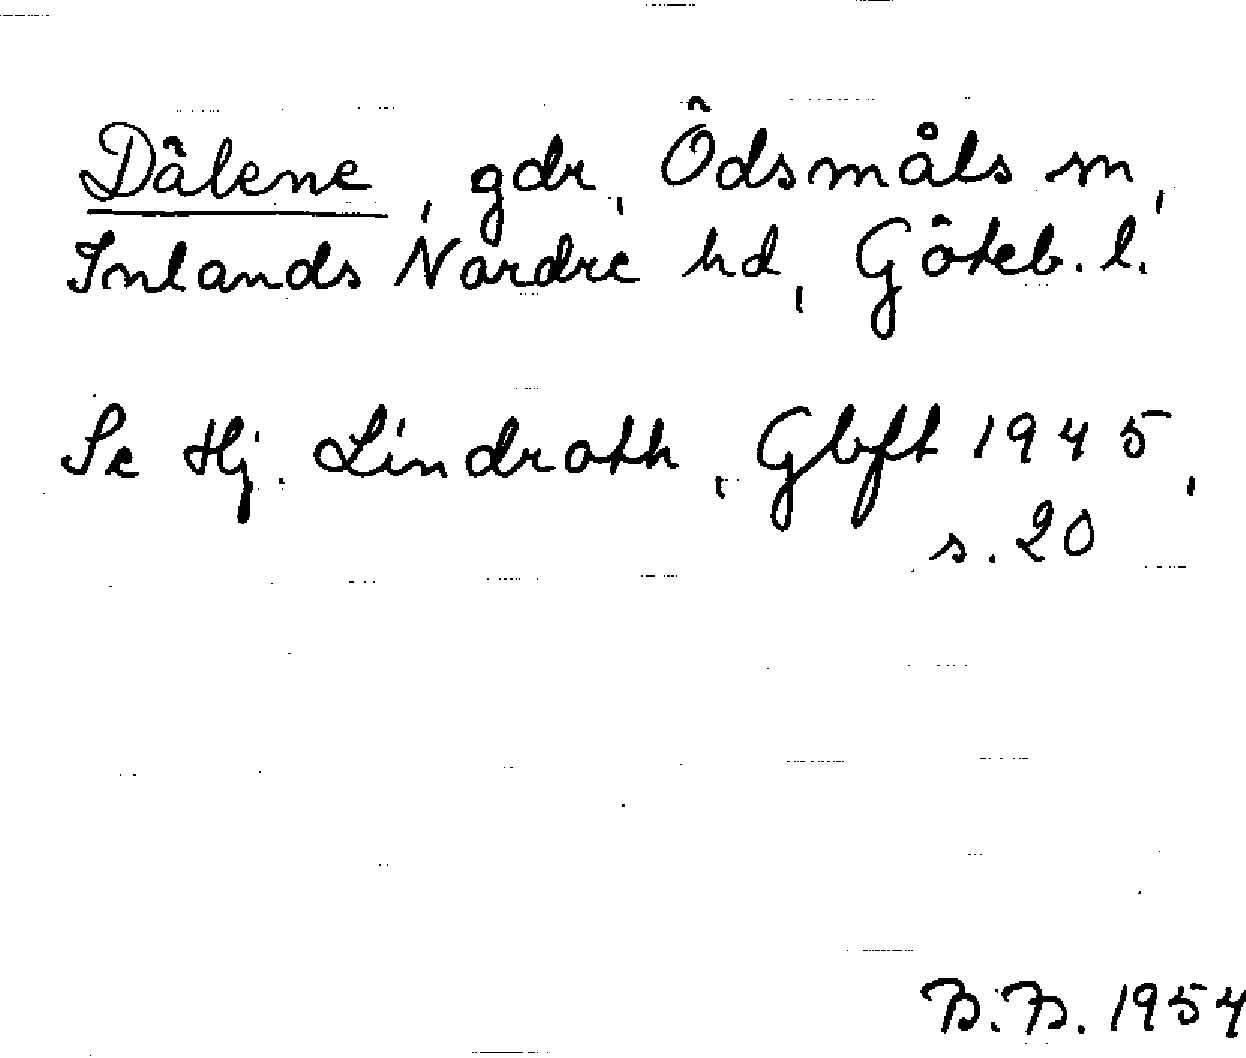 Dålene, gdr, Ödsmåls sn,
Inlands Nordre hd, Göteb. l.
Se Hj. Lindroth, Gbft 1945,
s. 20
B.B. 1954